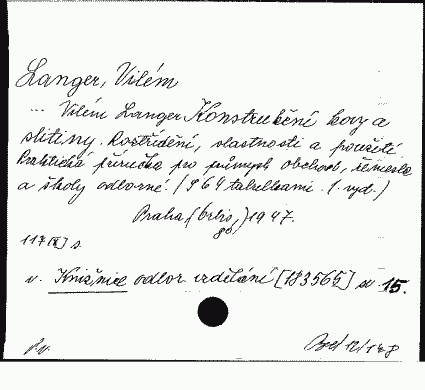 Langer, Vilém
... Vilém Langer Konstrukční kovy a
slitiny. Roztřídění, vlastnosti a použití.
Praktická příručka pro průmysl, obchod, řemesla
a školy odborné. (S 64 tabulkami. 1. vyd.)
Praha, (Orbis, 1947.
117 [V] s.
v. Knižnice odbor. vzdělání [183565] sv 15.